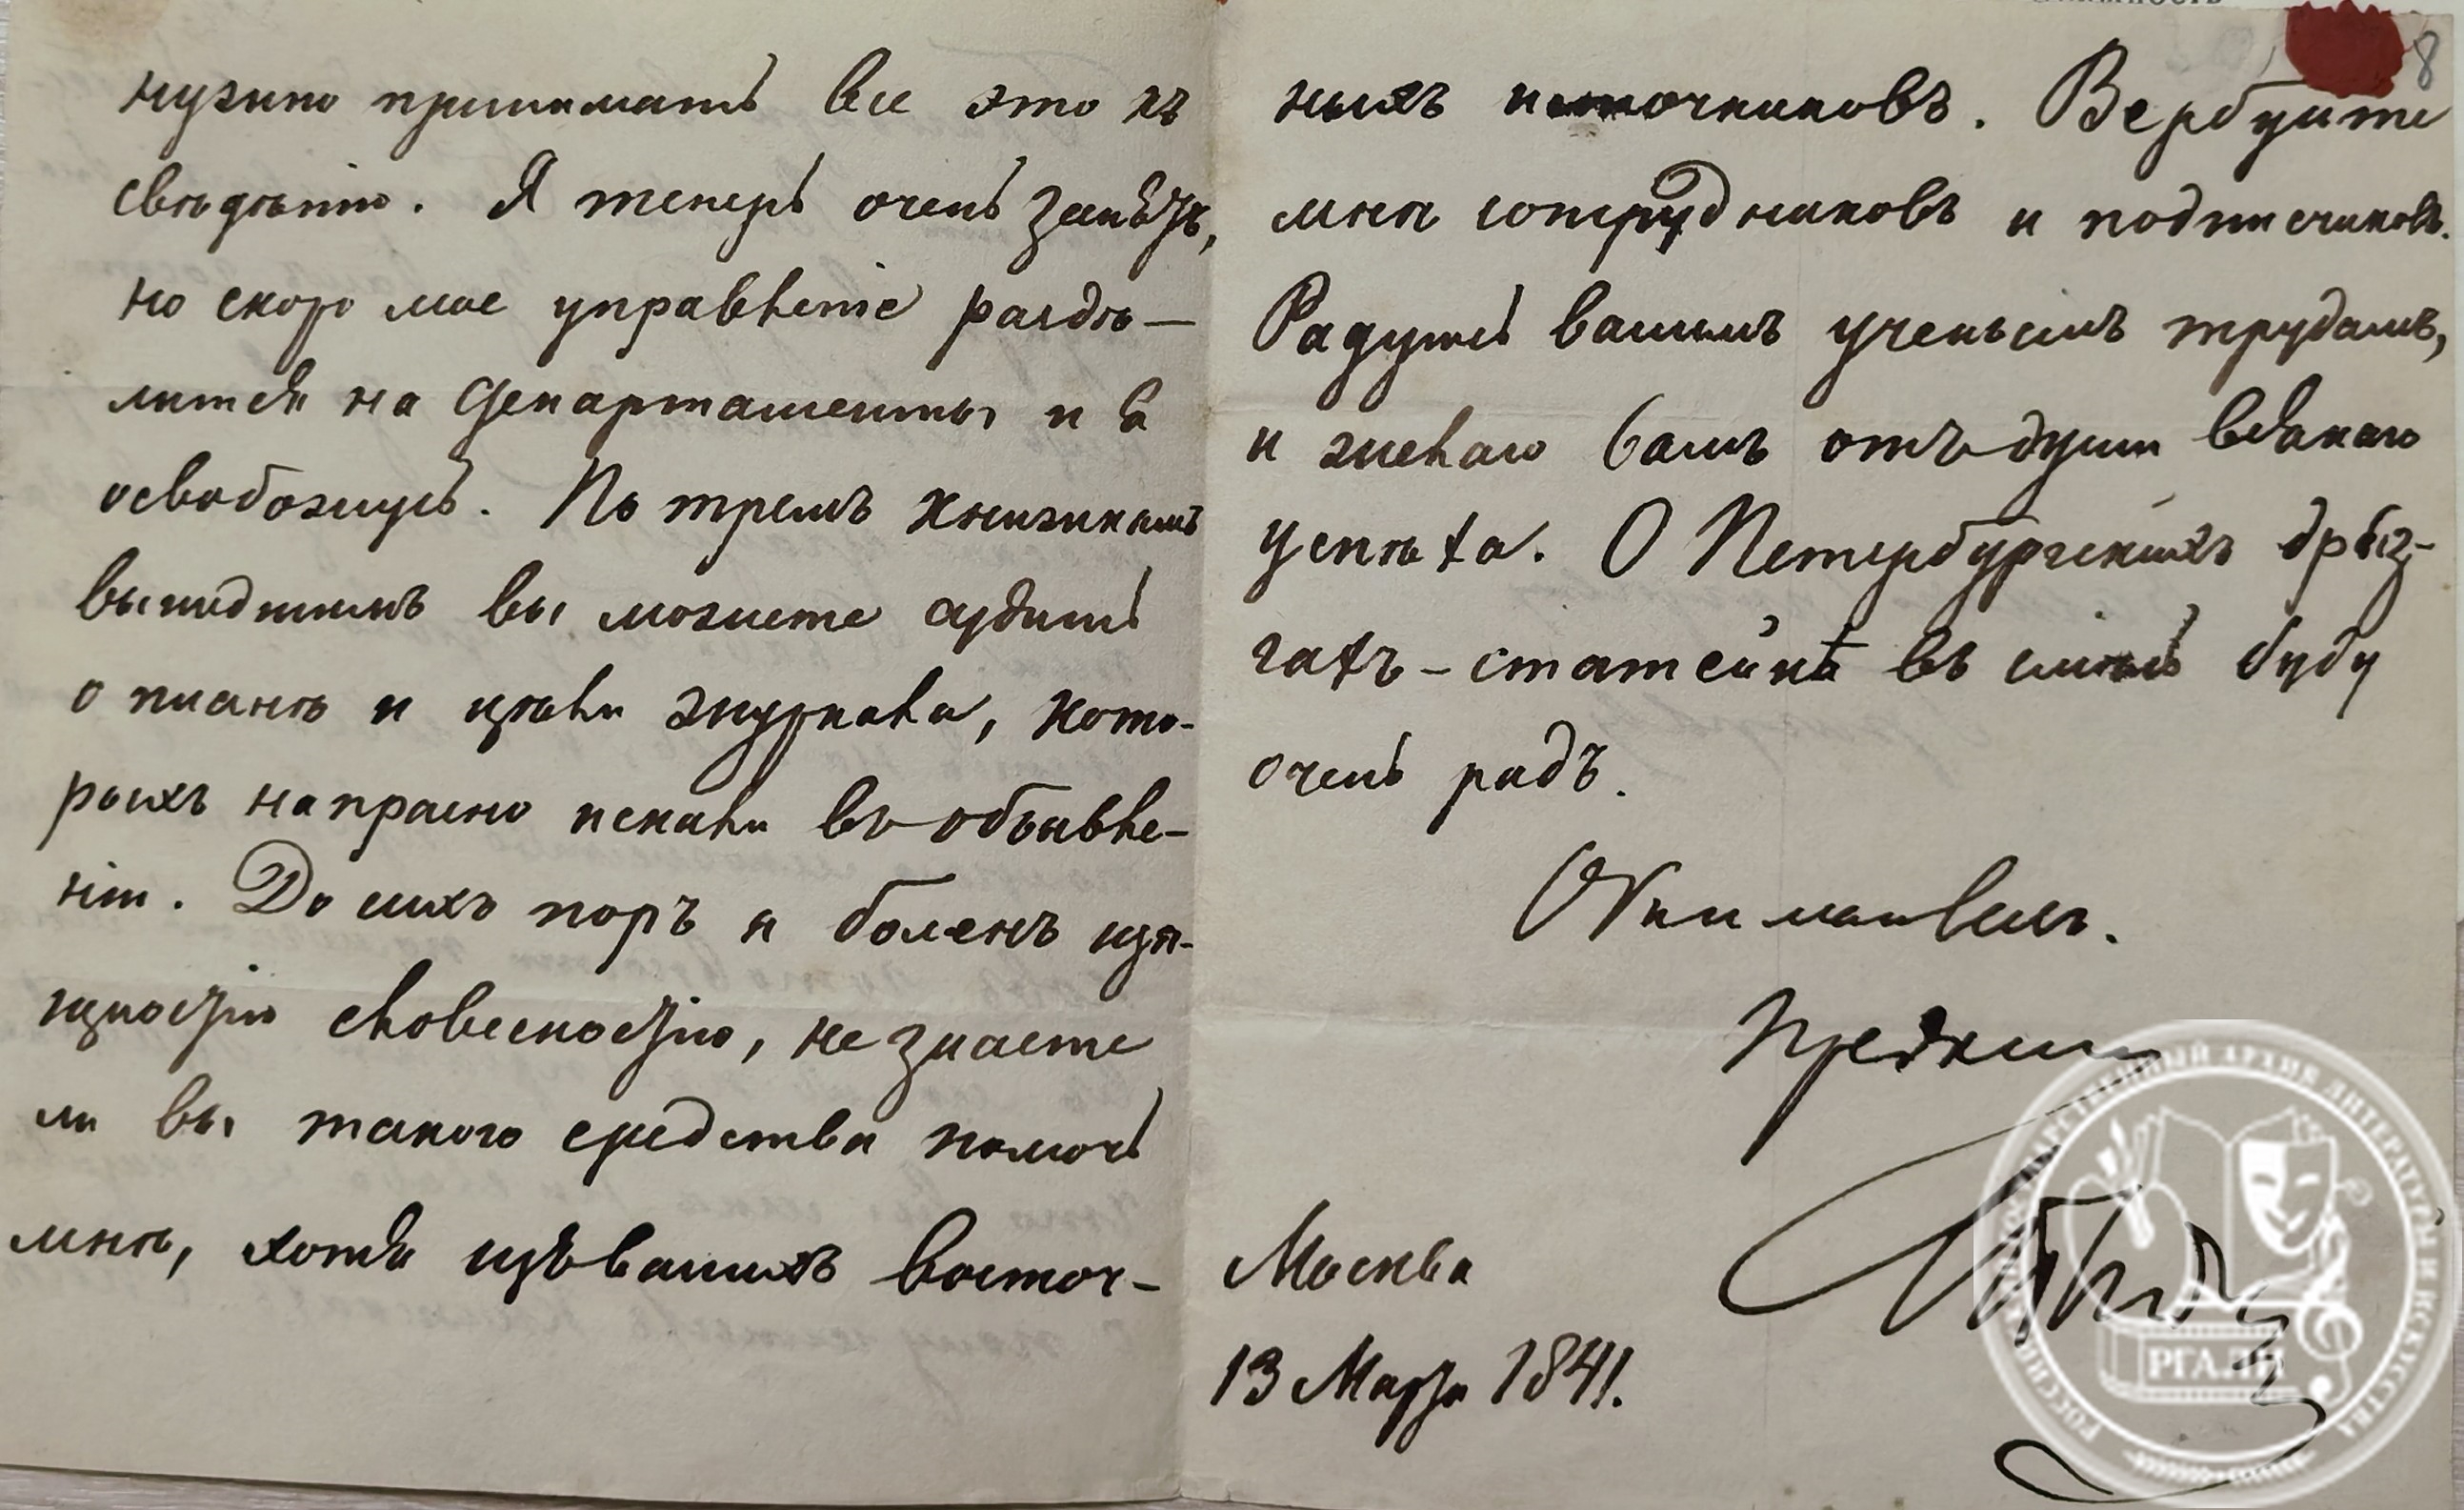 нужно принимать все это къ
свѣдѣнію. Я теперь очень занятъ,
но скоро мое управленіе раздѣ—
лится на Департаменты и я
освобожусь. По тремъ книжкамъ
вышедшимъ вы можете судить
о планѣ и цѣли журнала, кото-
рыхъ напрасно искали въ объявле-
ніи. До сихъ поръ я боленъ изя-
щностію словесностію, не знаете
ли вы такого средства помочь
мнѣ, хотя изъ вашихъ восточ-
ныхъ источниковъ. Вербуйте
мнѣ сотрудниковъ и подписчиковъ.
Радуюсь вашимъ ученымъ трудамъ,
и желаю вамъ отъ души всякаго
успѣха. О Петербургскихъ дрыз-
гахъ - статейкѣ въ смѣсь буду
очень радъ.
Обнимаю васъ.
Преданный
Москва
13 Марта 1841.
8
РОССИЙСКИЙ ГОСУДАРСТВЕННЫЙ АРХИВ ЛИТЕРАТУРЫ И ИСКУССТВА
РГАЛИ